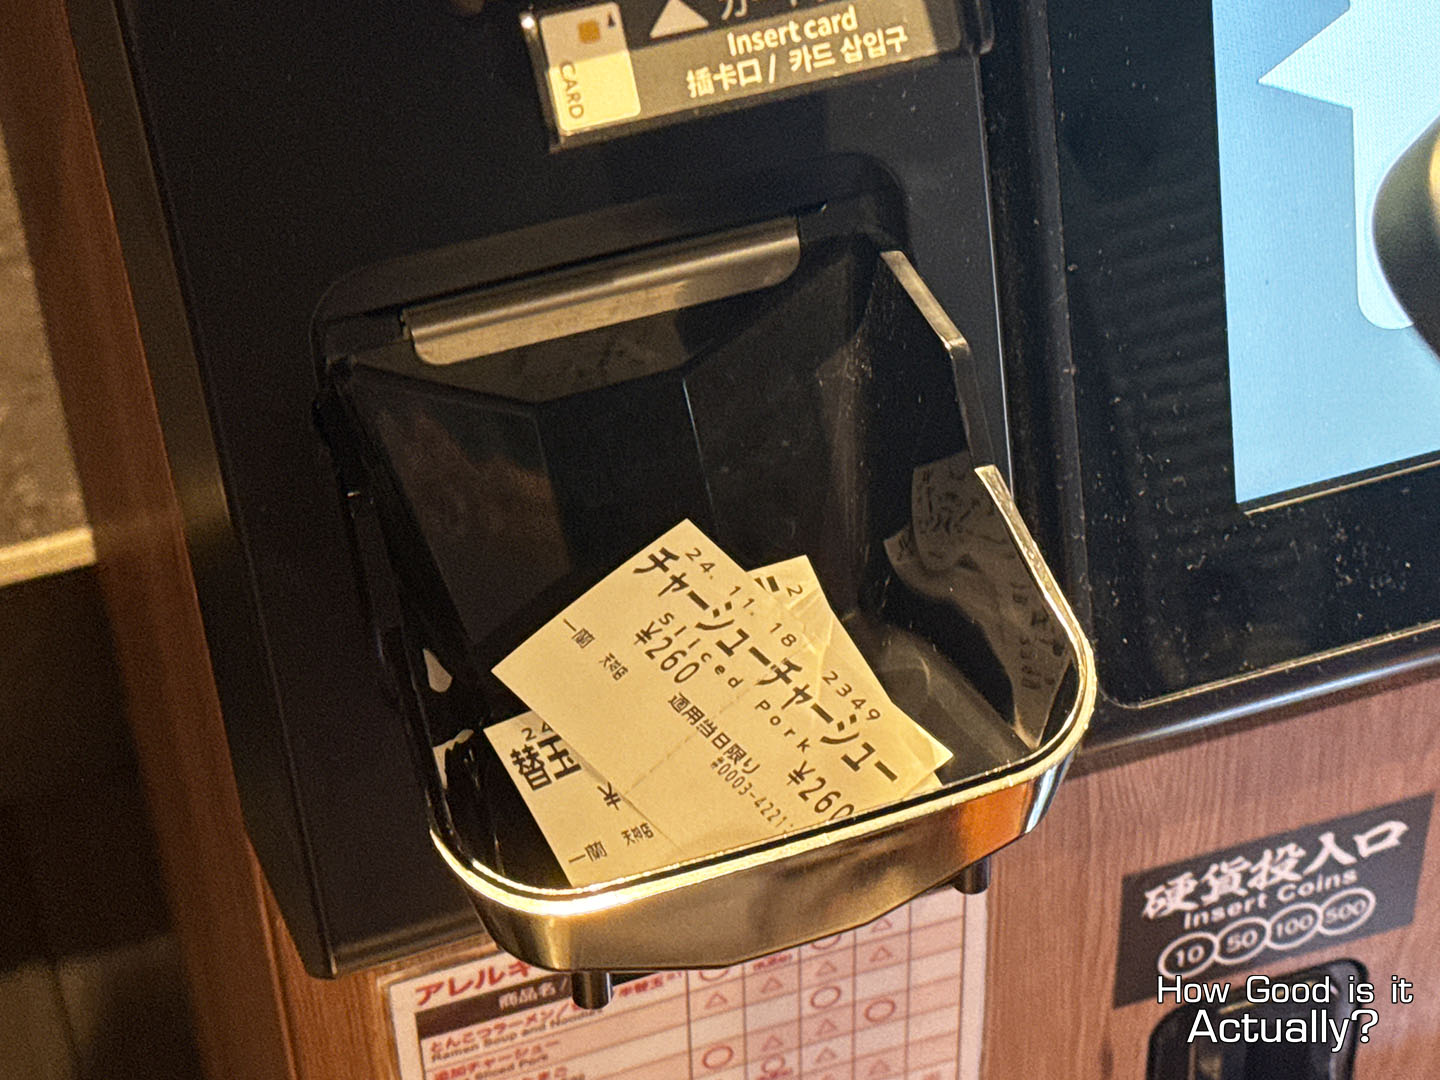 CARD
Insert card
插卡口 / 카드 삽입구
24. 11. 18 2349
チャーシューチャーシュー
Sliced Pork
¥260 ¥260
適用当日限り
#0003-4221
一蘭 天神店
2
24
替玉
一蘭 天神店
硬貨投入口
Insert Coins
10 50 100 500
アレルギ
商品名/
とんこつラーメン/
Ramen Soup and Noodles
追加チャーシュー
Sliced Pork
How Good is it
Actually?